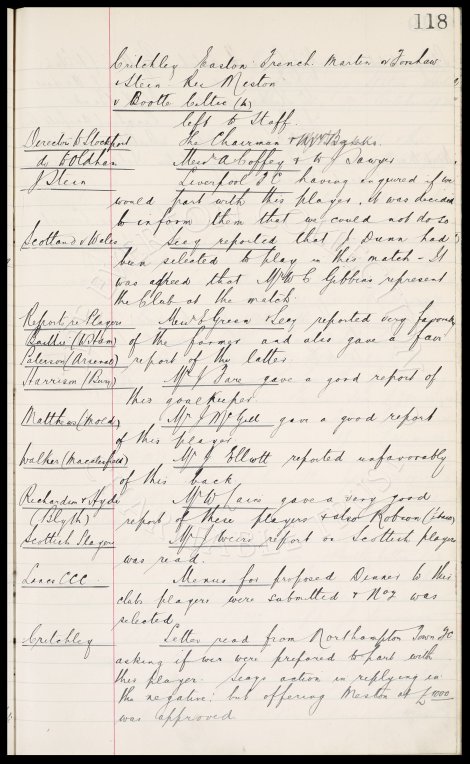 118
Critchley Easton French Martin or Forshaw
& Stein. Res Meston
v Bootle Celtic (h)
left to Staff.
Director to Stockport The Chairman &
do to Oldham Messrs A Coffey & W J Sawyer
J Stein Liverpool F C having enquired if we
would part with this player, it was decided
to inform them that we could not do so
Scotland v Wales Secy reported that J Dunn had
been selected to play in this match - It
was agreed that Mr W C Gibbins represent
the Club at the match.
Reports re Players Messrs E Green & Secy reported very favourably
(W Ham) of the former and also gave a fair
Paterson (Arsenal) report of the latter
Harrison (Bury) Mr J gave a good report of
this goalkeeper.
Matthews (Mold) Mr J McGill gave a good report
of this player
Walker (Macclesfield) Mr J Elliott reported unfavorably
of this back
Richardson & Hyde Mr W gave a very good
(Blyth) report of these players & also Robson
Scottish Players Mr J Weir's report on Scottish players
was read.
Lancs CCC. Menus for proposed Dinner to this
clubs players were submitted & No 2 was
selected
Critchley Letter read from Northampton Town FC
asking if we were prepared to part with
this player. Secys action in replying in
the negative; but offering Meston at £1000
was approved